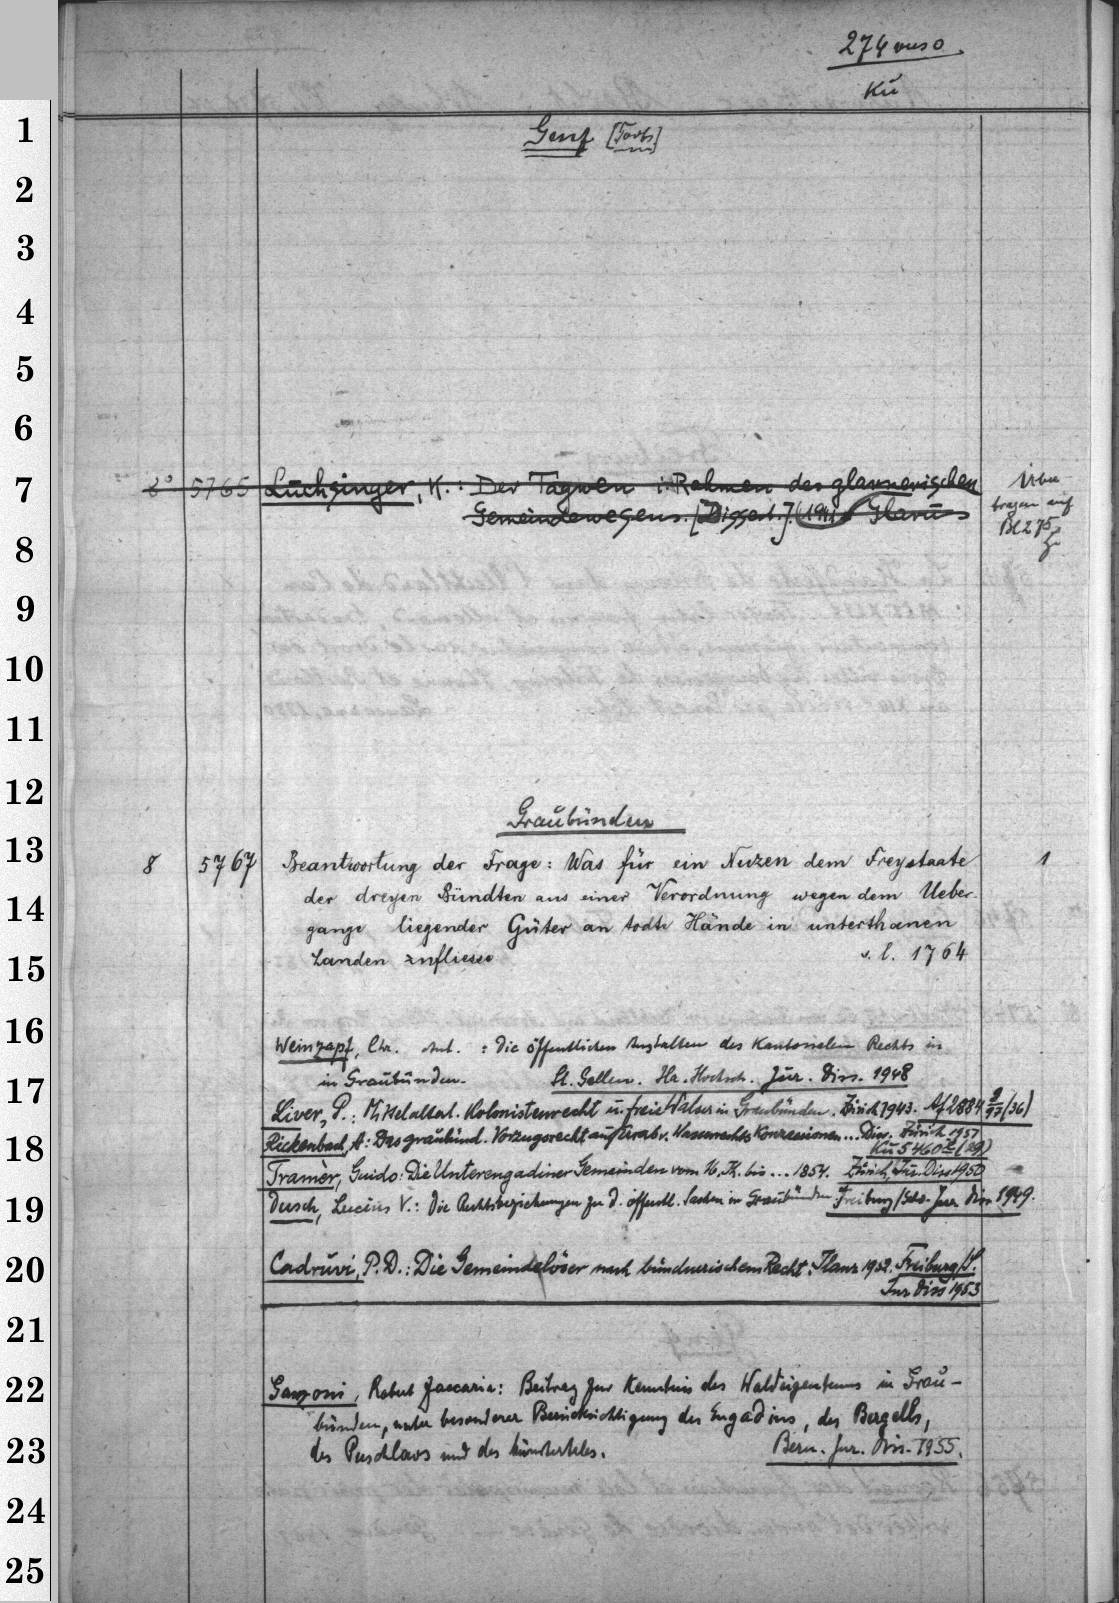 274 verso
Kü
1
Genf [Forts.]
2
3
4
5
6
7 8° 5765 Lüchsinger, K.: Der Tagwen i. Rahmen des glarnerischen Über-
Gemeindewesens. [Dissert.]. (1941) Glarus tragen auf
Bl 275
8
9
10
11
12
Graubünden
13 8 5767 Beantwortung der Frage: Was für ein Nuzen dem Freystaate 1
14 der dreyen Bündten aus einer Verordnung wegen dem Ueber-
gange liegender Güter an todte Hände in unterthanen
15 Landen zufliesse s. l. 1764
16 Weinzapf, Chr. Ant. : Die öffentlichen Anstalten des Kantonalen Rechts in
17 in Graubünden. St. Gallen. Ha. Hochsch. Jur. Diss. 1948
Liver, P.: Mittelalterl. Kolonistenrecht u. freie Walser in Graubünden. Zürich 1943. Af 2884 (36)
18 Rickenbach, A: Das graubünd. Vorzugsrecht auf Erwerb v. Wasserrechts Konzessionen... Diss. Zürich 1957
Kü 5460 (29)
Tramèr, Guido: Die Unterengadiner Gemeinden vom 16. Jh. bis ... 1854. Zürich, Jur. Diss 1950
19 Dusch, Lucius V.: Die Rechtsbeziehungen zu d. öffentl. Sachen in Graubünden Freiburg/Schw. Jur. Diss. 1949.
20 Cadruvi, P. D.: Die Gemeindelöser nach bündnerischem Recht. Ilanz 1952. Freiburg/S.
Jur Diss 1953
21
22 Ganzoni, Robert Zaccaria: Beitrag zur Kenntnis des Waldeigentums in Grau-
bünden, unter besonderer Berücksichtigung des Engadins, des Bergells,
23 des Puschlavs und des Münstertales. Bern. Jur. Diss. 1955.
24
25